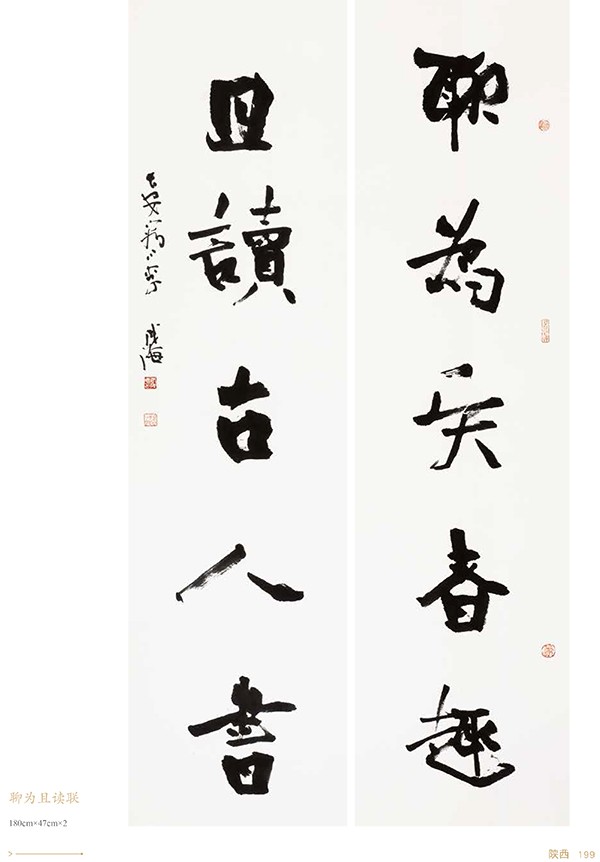 聊為春趣
且讀古人書
長安
成海
聊为且读联
180cm×47cm×2
陕西 199